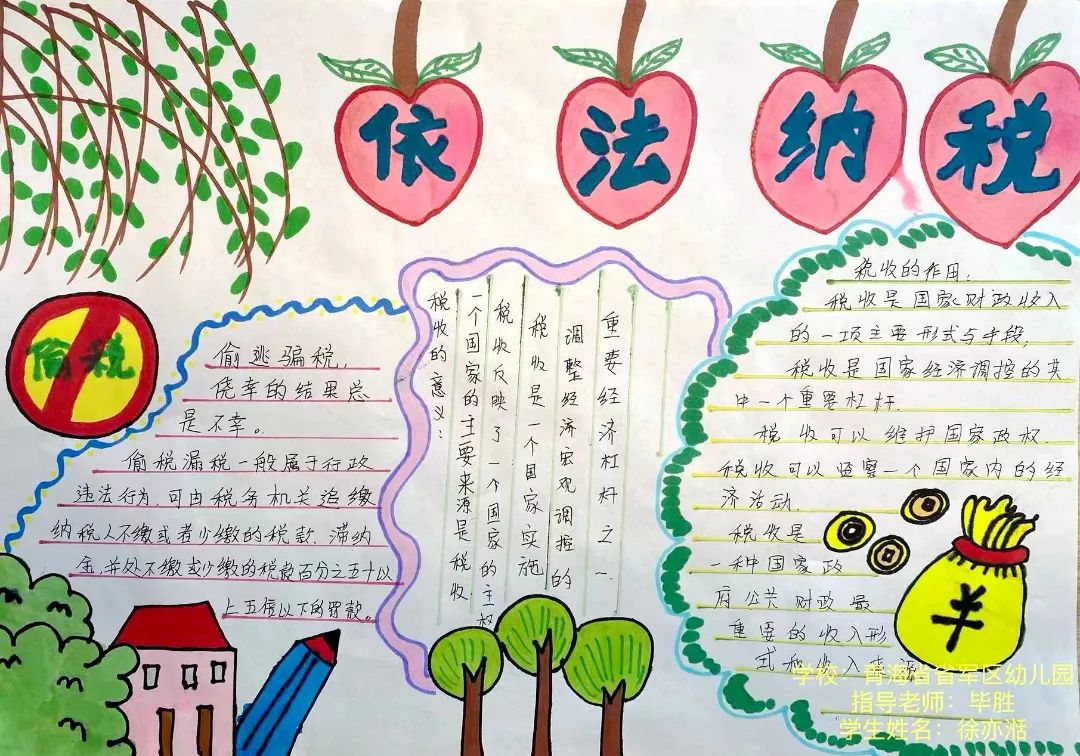 依法纳税
偷税
偷逃骗税,
侥幸的结果总
是不幸。
偷税漏税一般属于行政
违法行为,可由税务机关追缴
纳税人不缴或者少缴的税款 滞纳
金,并处不缴或少缴的税款百分之五十以
上五倍以下的罚款。
税收的意义:
一个国家的主要来源是税收
税收反映了一个国家的主权
税收是一个国家实施
调整经济宏观调控的
重要经济杠杆之一.
税收的作用:
税收是国家财政收入
的一项主要形式与手段,
税收是国家经济调控的其
中一个重要杠杆.
税收可以维护国家政权.
税收可以监察一个国家内的经
济活动.
税收是
一种国家政
府公共财政最
重要的收入形
式和收入来源
学校:青海省省军区幼儿园
指导老师:毕胜
学生姓名:徐亦湉